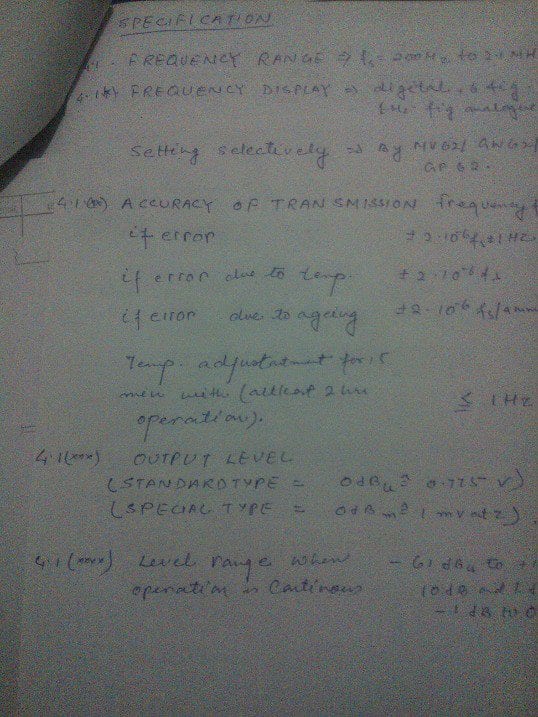 SPECIFICATION
4.1 - FREQUENCY RANGE ⇒ fs = 200Hz to 2.1 MH
4.1(*) FREQUENCY DISPLAY ⇒ digital, 6 fig
1Hz fig analogue
Setting selectively ⇒ By MV62/ GN62/
GP 62.
4.1(**) ACCURACY OF TRANSMISSION frequency f
if error ± 2.10⁻⁶fs±1Hz
if error due to temp. ± 2.10⁻⁶ fs
if error due to ageing ±2.10⁻⁶ fs/annu
Temp. adjustatment for 15
men with (atleast 2 hrs
operation). ≤ 1Hz
4.1(***) OUTPUT LEVEL
(STANDARD TYPE = 0dBu ≙ 0.775 V)
(SPECIAL TYPE = 0dBm ≙ 1 mv at Z)
4.1(****) Level range when - 61 dBu to +1
operation is Continous 10 dB and 1 d
-1 dB to 0